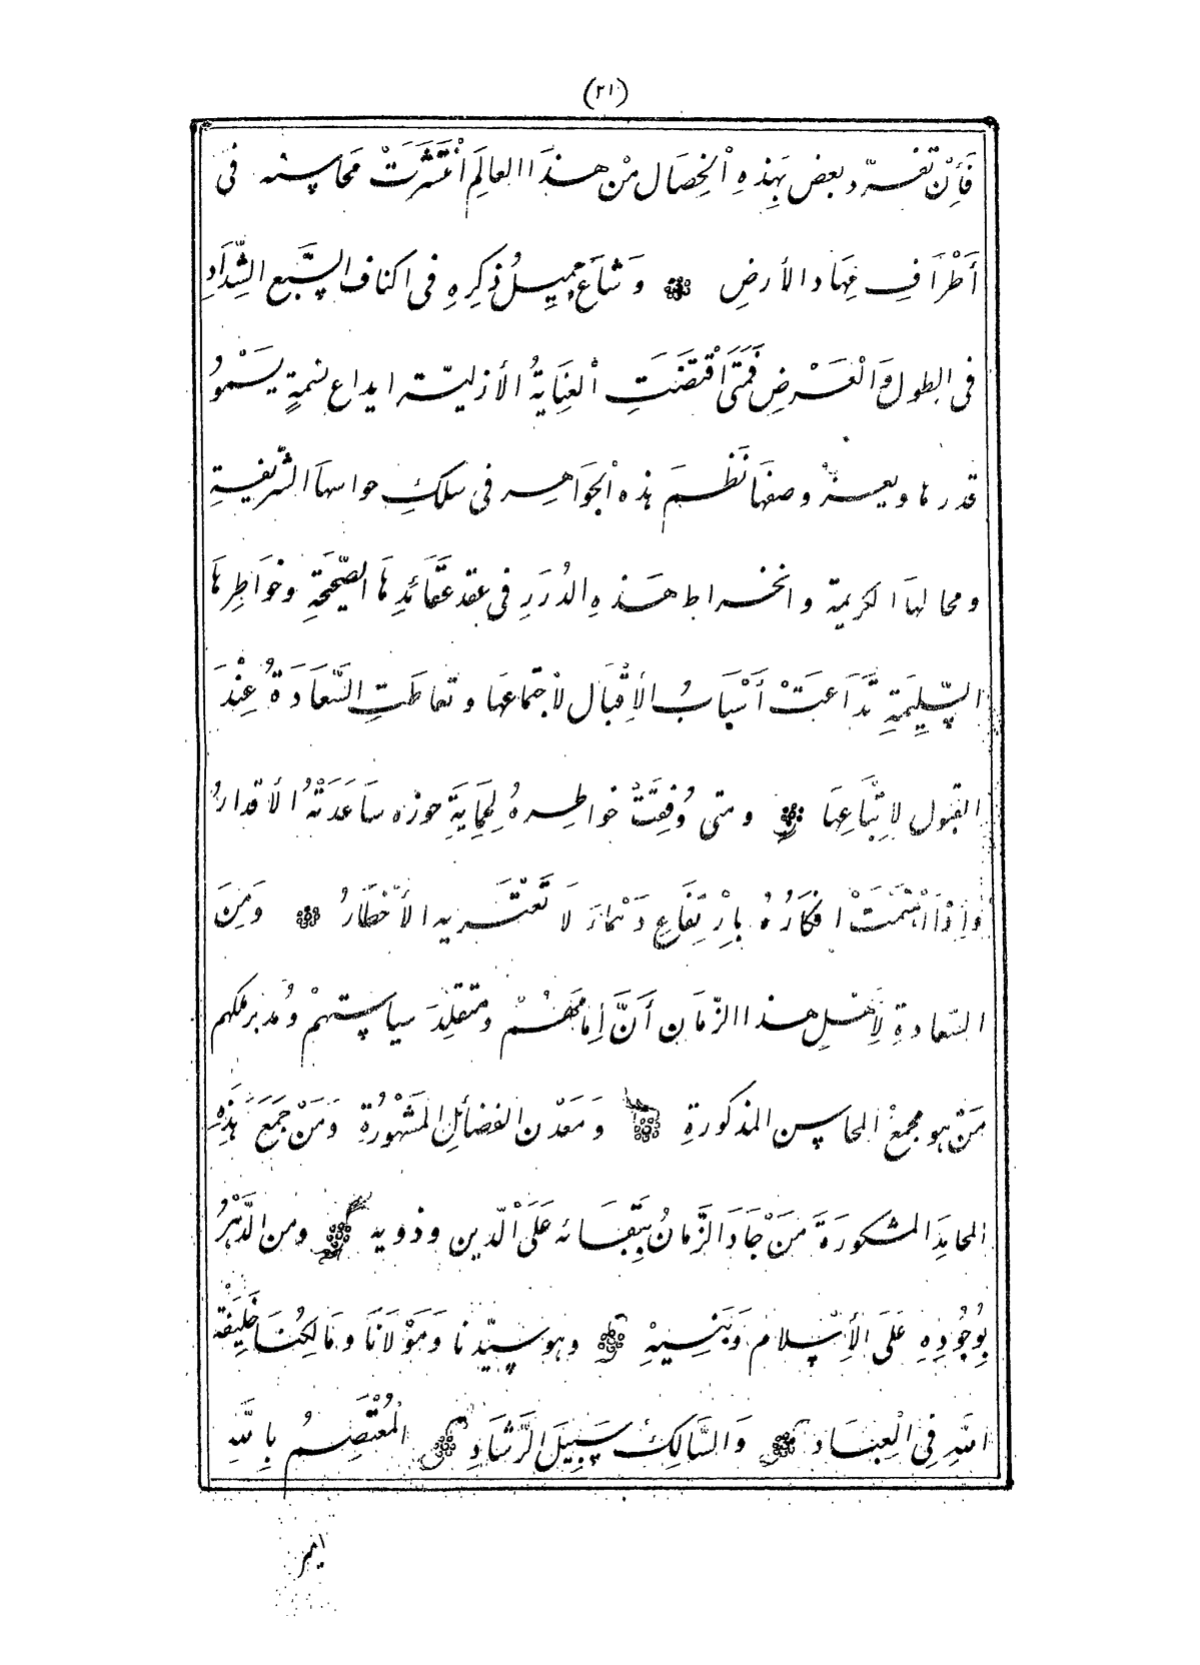 (٢١)
فَأِنْ تفرّد بعض بَهذهِ اْلخِصَال مْن هذَا العالِمَ اْنتَشَرَتْ مَحَاسِنه فى
أَطْرَافِ مِهَاد الأرضِ وَشَاعَ جميلُ ذِكِرِهِ فى اكناف السَّبع الشِّدَادِ
فى الطول وَالْعَرْضِ فَمَتَى اَقْتَضَتِ اْلعِنَايةُ الأزليّة ايداع نسْمةٍ يَسْمُو
قدرها ويعزّ وصفهَا نَظْمَ هذه اْلجَوَاهرِ فى سلكِ حواسهاَ الشّريفيةِ
ومحالهاَ الكريمة وانخراط هَذهِ الدُرَرِ فى عقد عَقَائدِهَا الصّحَيحَةِ وخوَاطِرهَا
السّلِيمَةِ تَدَاعَتْ أَسْبَابُ الأِقْبَال لأجتماعَها وتعاطَتِ السَّعَادَةُ عِنْدَ
القبُول لاِتّبَاعِهَا ومتى وُفِقَتْ خواطرهُ لِحِمَايَةِ حوزه سَاعَدَتْهُ الأقدارُ
وَاِذْا اهْتَمَتْ افكَارُهُ بِارْتِفَاعِ دَعْمَاءَ لاَ تَعْتَريه الأخْطَارُ وَمِنَ
السّعادةِ لِأهْلِ هذا الزّمَان أَنَّ اِمامَهُمْ ومُتقلِّدَ سياستهمْ وُمدبر ملكهم
مَنْ هو مجمعْ المحاسن المذكورةِ وَمَعْدن الفضائِل المَشْهُورُةِ وَمَنْ جَمَعَ هَذِهِ
المحامِدَ المشكورَةَ مَنَ جَادَ الزَّمانُ بِبَقَائه عَلَى اْلدّين وذويه ومن الدَّهْرُ
بِوُجُودِهِ عَلَى الأِسْلام وَبَنِيهِ وهو سيّدنا وَمَوْلَانَا ومَالِكُنَا خَلِيفَة
اللهِ فِي الْعِبَاد وَالسَّالِكُ سَبِيلَ الرَّشَادِ المُعْتَصِمُ بِاللَّهِ